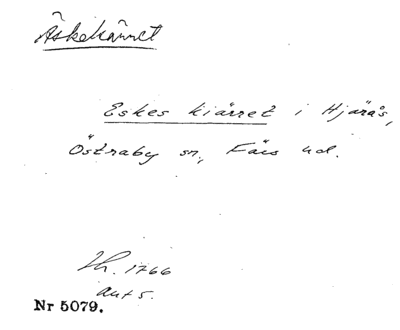 Äskekärret
Eskes kiärret i Hjärås,
Östraby sn, Färs hd.
Lh. 1766
akt 5.
Nr 5079.